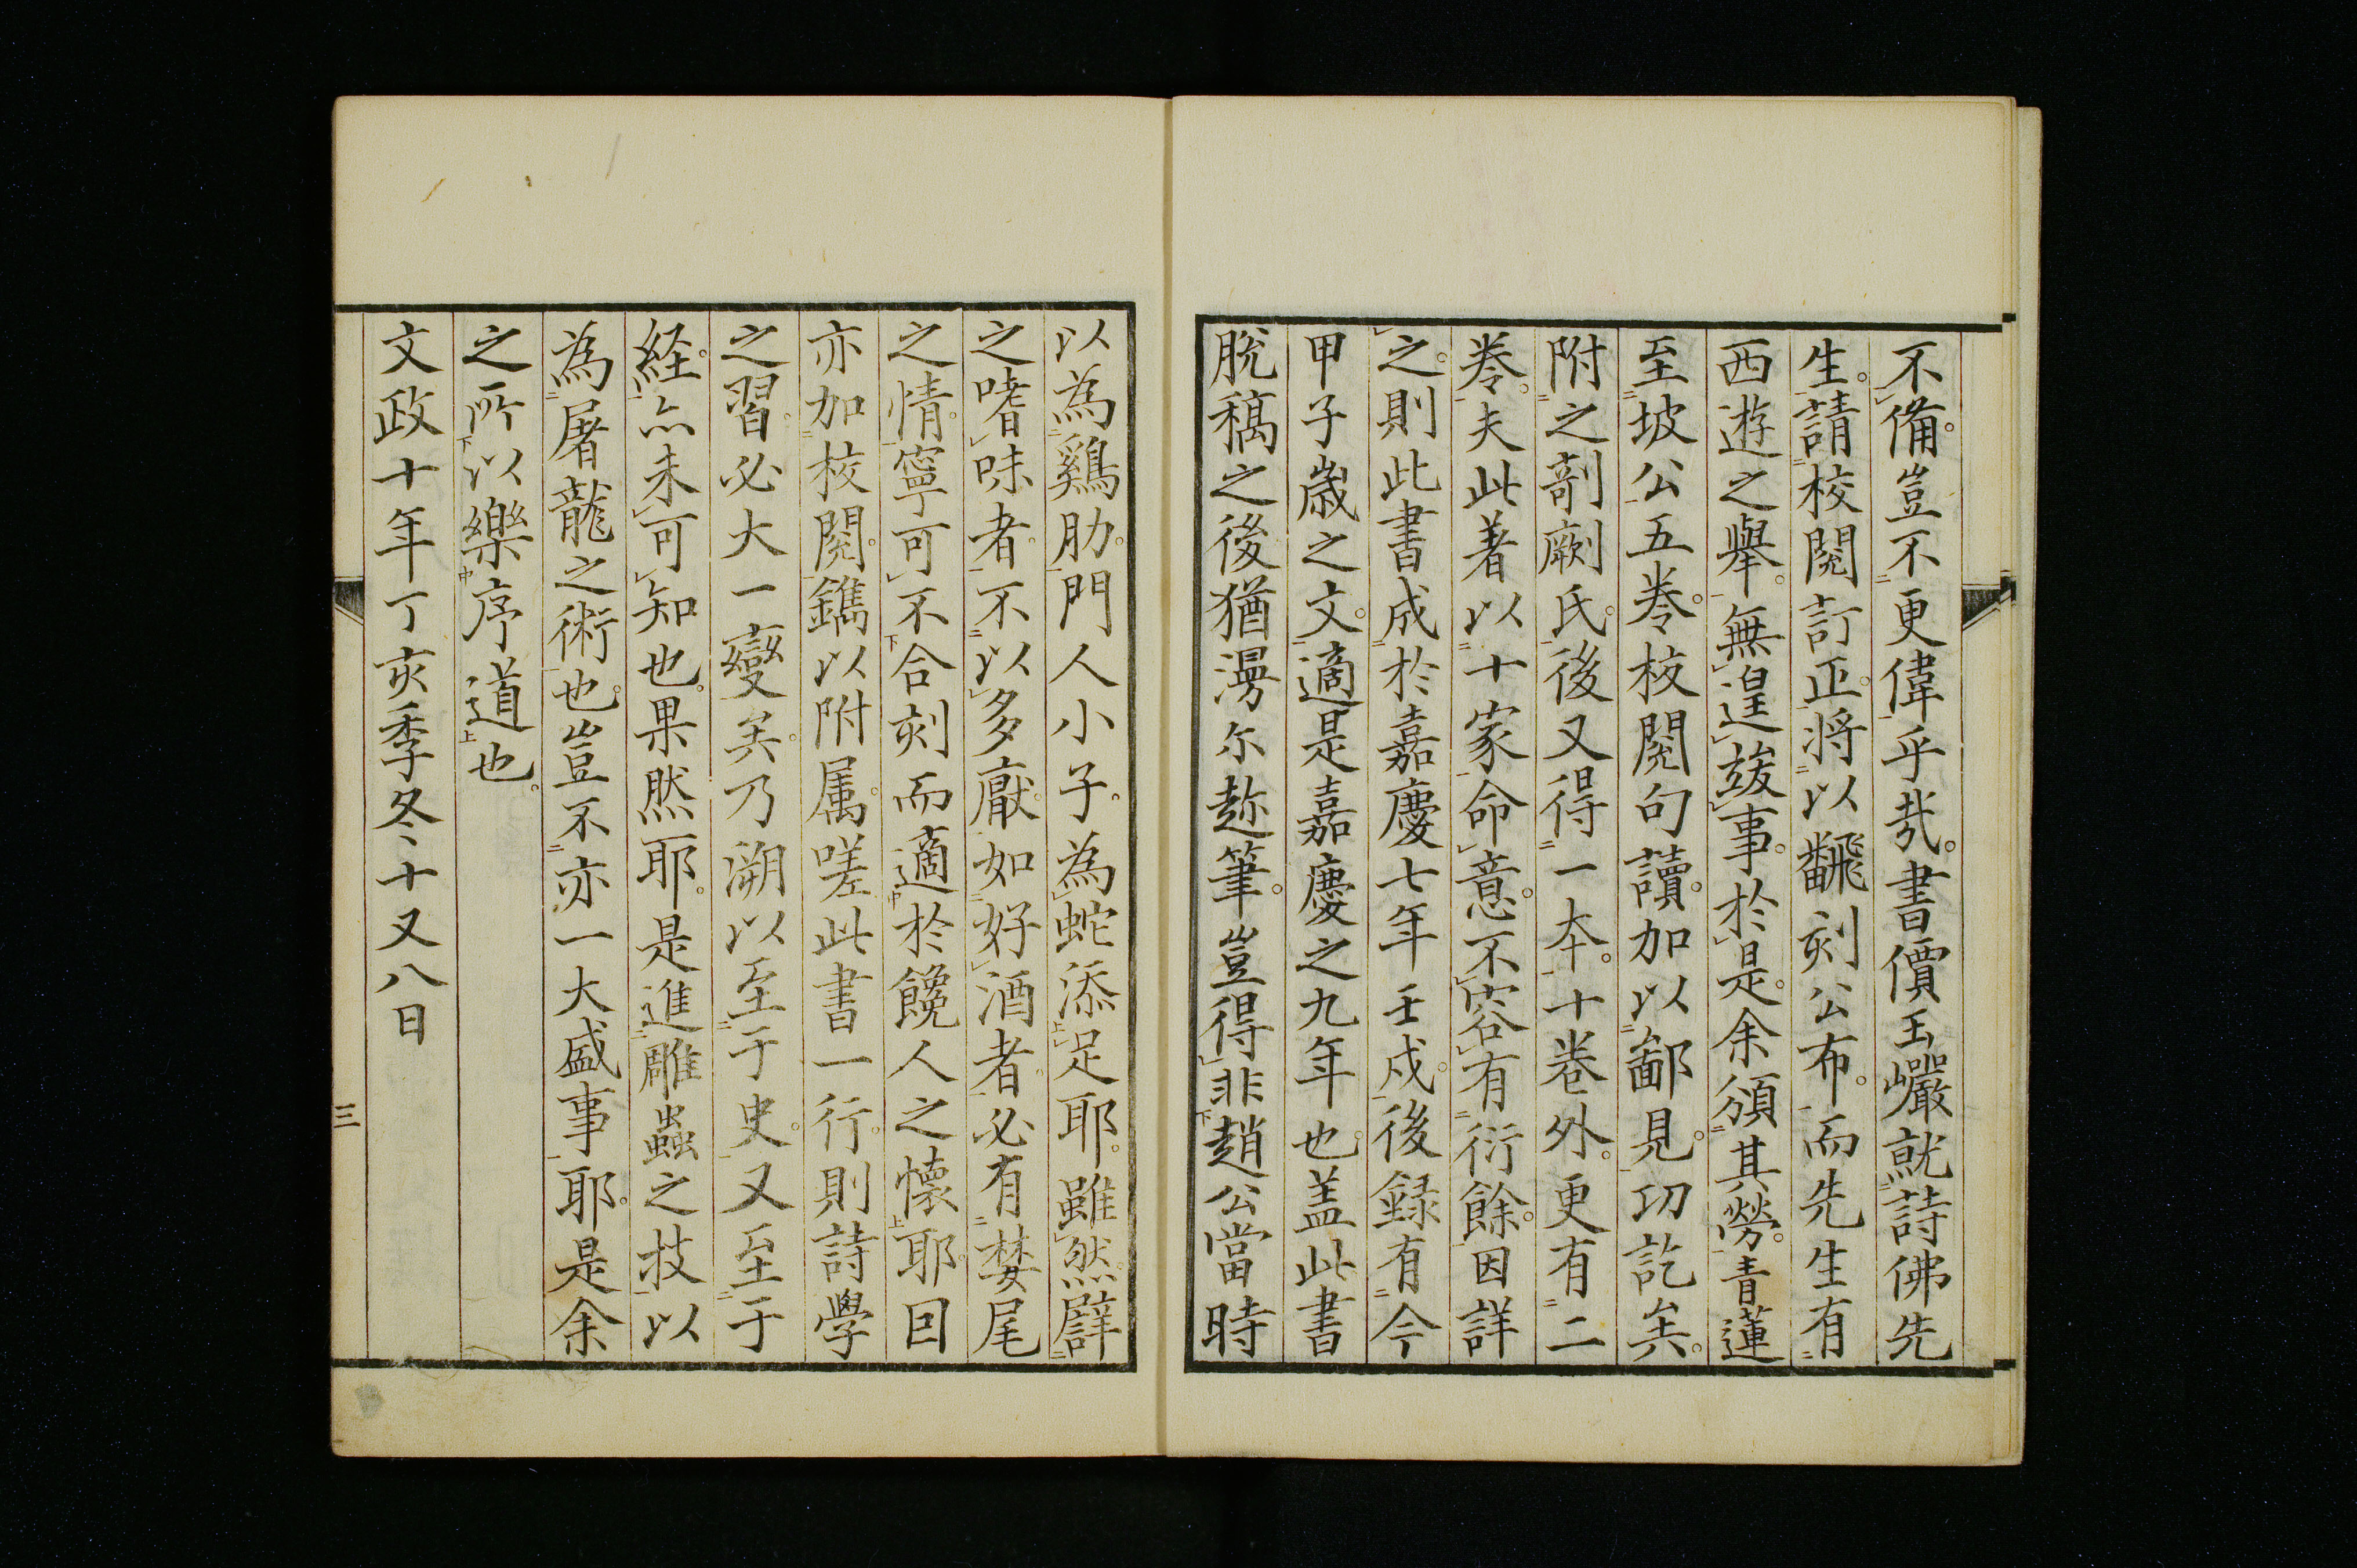 不備豈不更偉乎哉書價玉巖就詩佛先
生請校閱訂正将以飜刻公布而先生有
西遊之舉無遑竣事於是余須其勞青蓮
至坡公五卷校閱句讀加以鄙見功訖矣
附之剞劂氏後又得一本十卷外更有二
卷夫此著以十家命意不容有衍餘因詳
之則此書成於嘉慶七年壬戌後録有今
甲子歲之文適是嘉慶之九年也盖此書
脱稿之後猶漫尓趂筆豈得非趙公當時
以為鷄肋門人小子為蛇添足耶雖然譬
之嗜味者不以多厭如好酒者必有婪尾
之情寧可不合刻而適於饞人之懷耶回
亦加校閱鐫以附属嗟此書一行則詩學
之習必大一變矣乃溯以至于史又至于
経亦未可知也果然耶是進雕蟲之技以
為屠龍之術也豈不亦一大盛事耶是余
之所以樂序道也
文政十年丁亥季冬十又八日
三